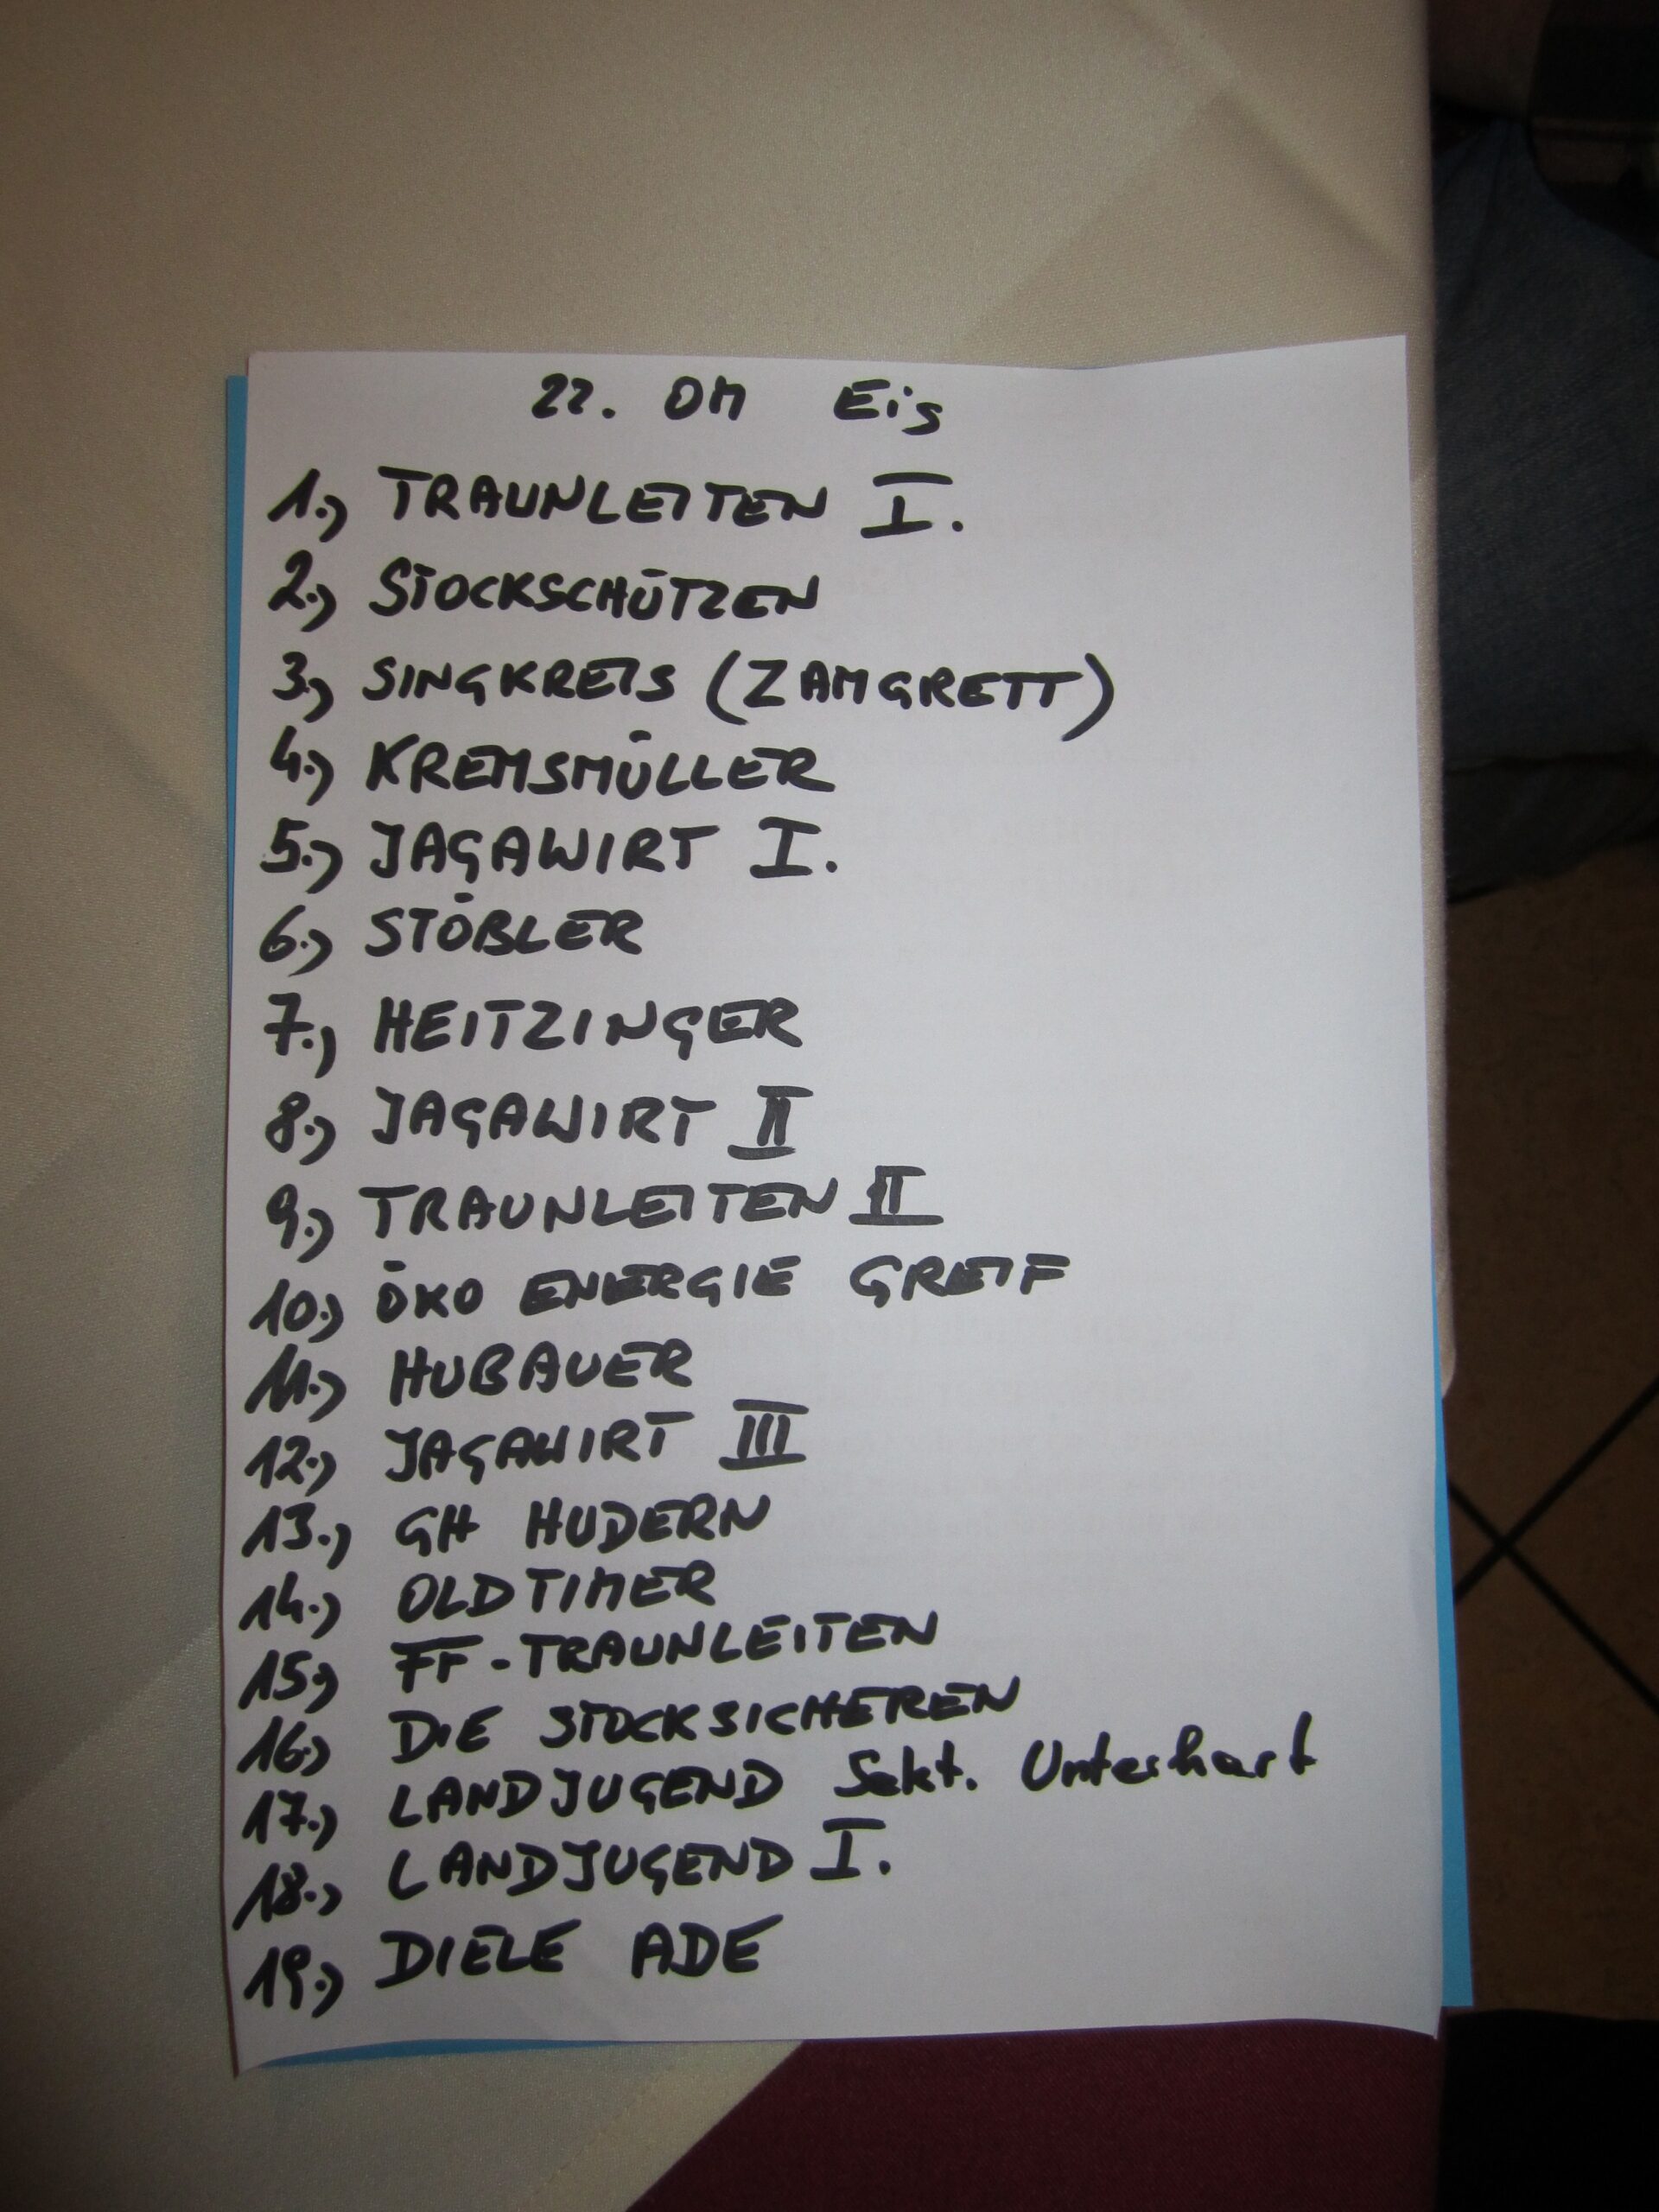 22. OM Eis
1.) TRAUNLEITEN I.
2.) STOCKSCHÜTZEN
3.) SINGKREIS (ZAMGRETT)
4.) KREMSMÜLLER
5.) JAGAWIRT I.
6.) STÖBLER
7.) HEITZINGER
8.) JAGAWIRT II
9.) TRAUNLEITEN II
10.) ÖKO ENERGIE GREIF
11.) HUBAUER
12.) JAGAWIRT III
13.) GH HUDERN
14.) OLDTIMER
15.) FF-TRAUNLEITEN
16.) DIE STOCKSICHEREN
17.) LANDJUGEND Sekt. Unterhart
18.) LANDJUGEND I.
19.) DIELE ADE